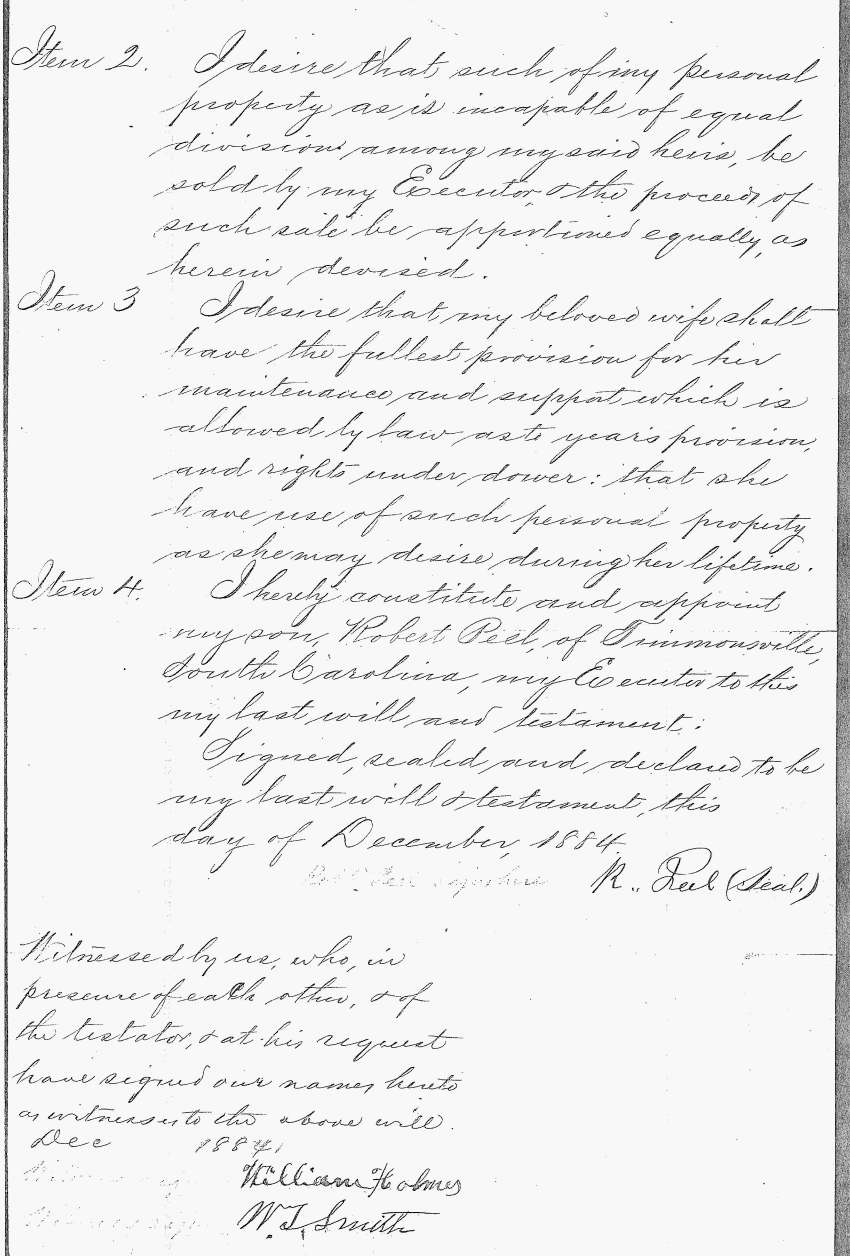 Item 2. I desire that such of my personal
property as is incapable of equal
division among my said heirs, be
sold by my Executor, & the proceeds of
such sale be apportioned equally, as
herein devised.
Item 3 I desire that my beloved wife shall
have the fullest provision for her
maintenance and support which is
allowed by law as to year's provision,
and rights under dower: that she
have use of such personal property
as she may desire during her lifetime.
Item 4. I hereby constitute and appoint
my son, Robert Peel, of Timmonsville,
South Carolina, my Executor to this
my last will and testament.
Signed, sealed and declared to be
my last will & testament, this
day of December, 1884.
R. Peel (Seal.)
Witnessed by us, who, in
presence of each other, & of
the testator, & at his request
have signed our names hereto
as witnesses to the above will.
Dec 1884,
William Holmes
W. T. Smith